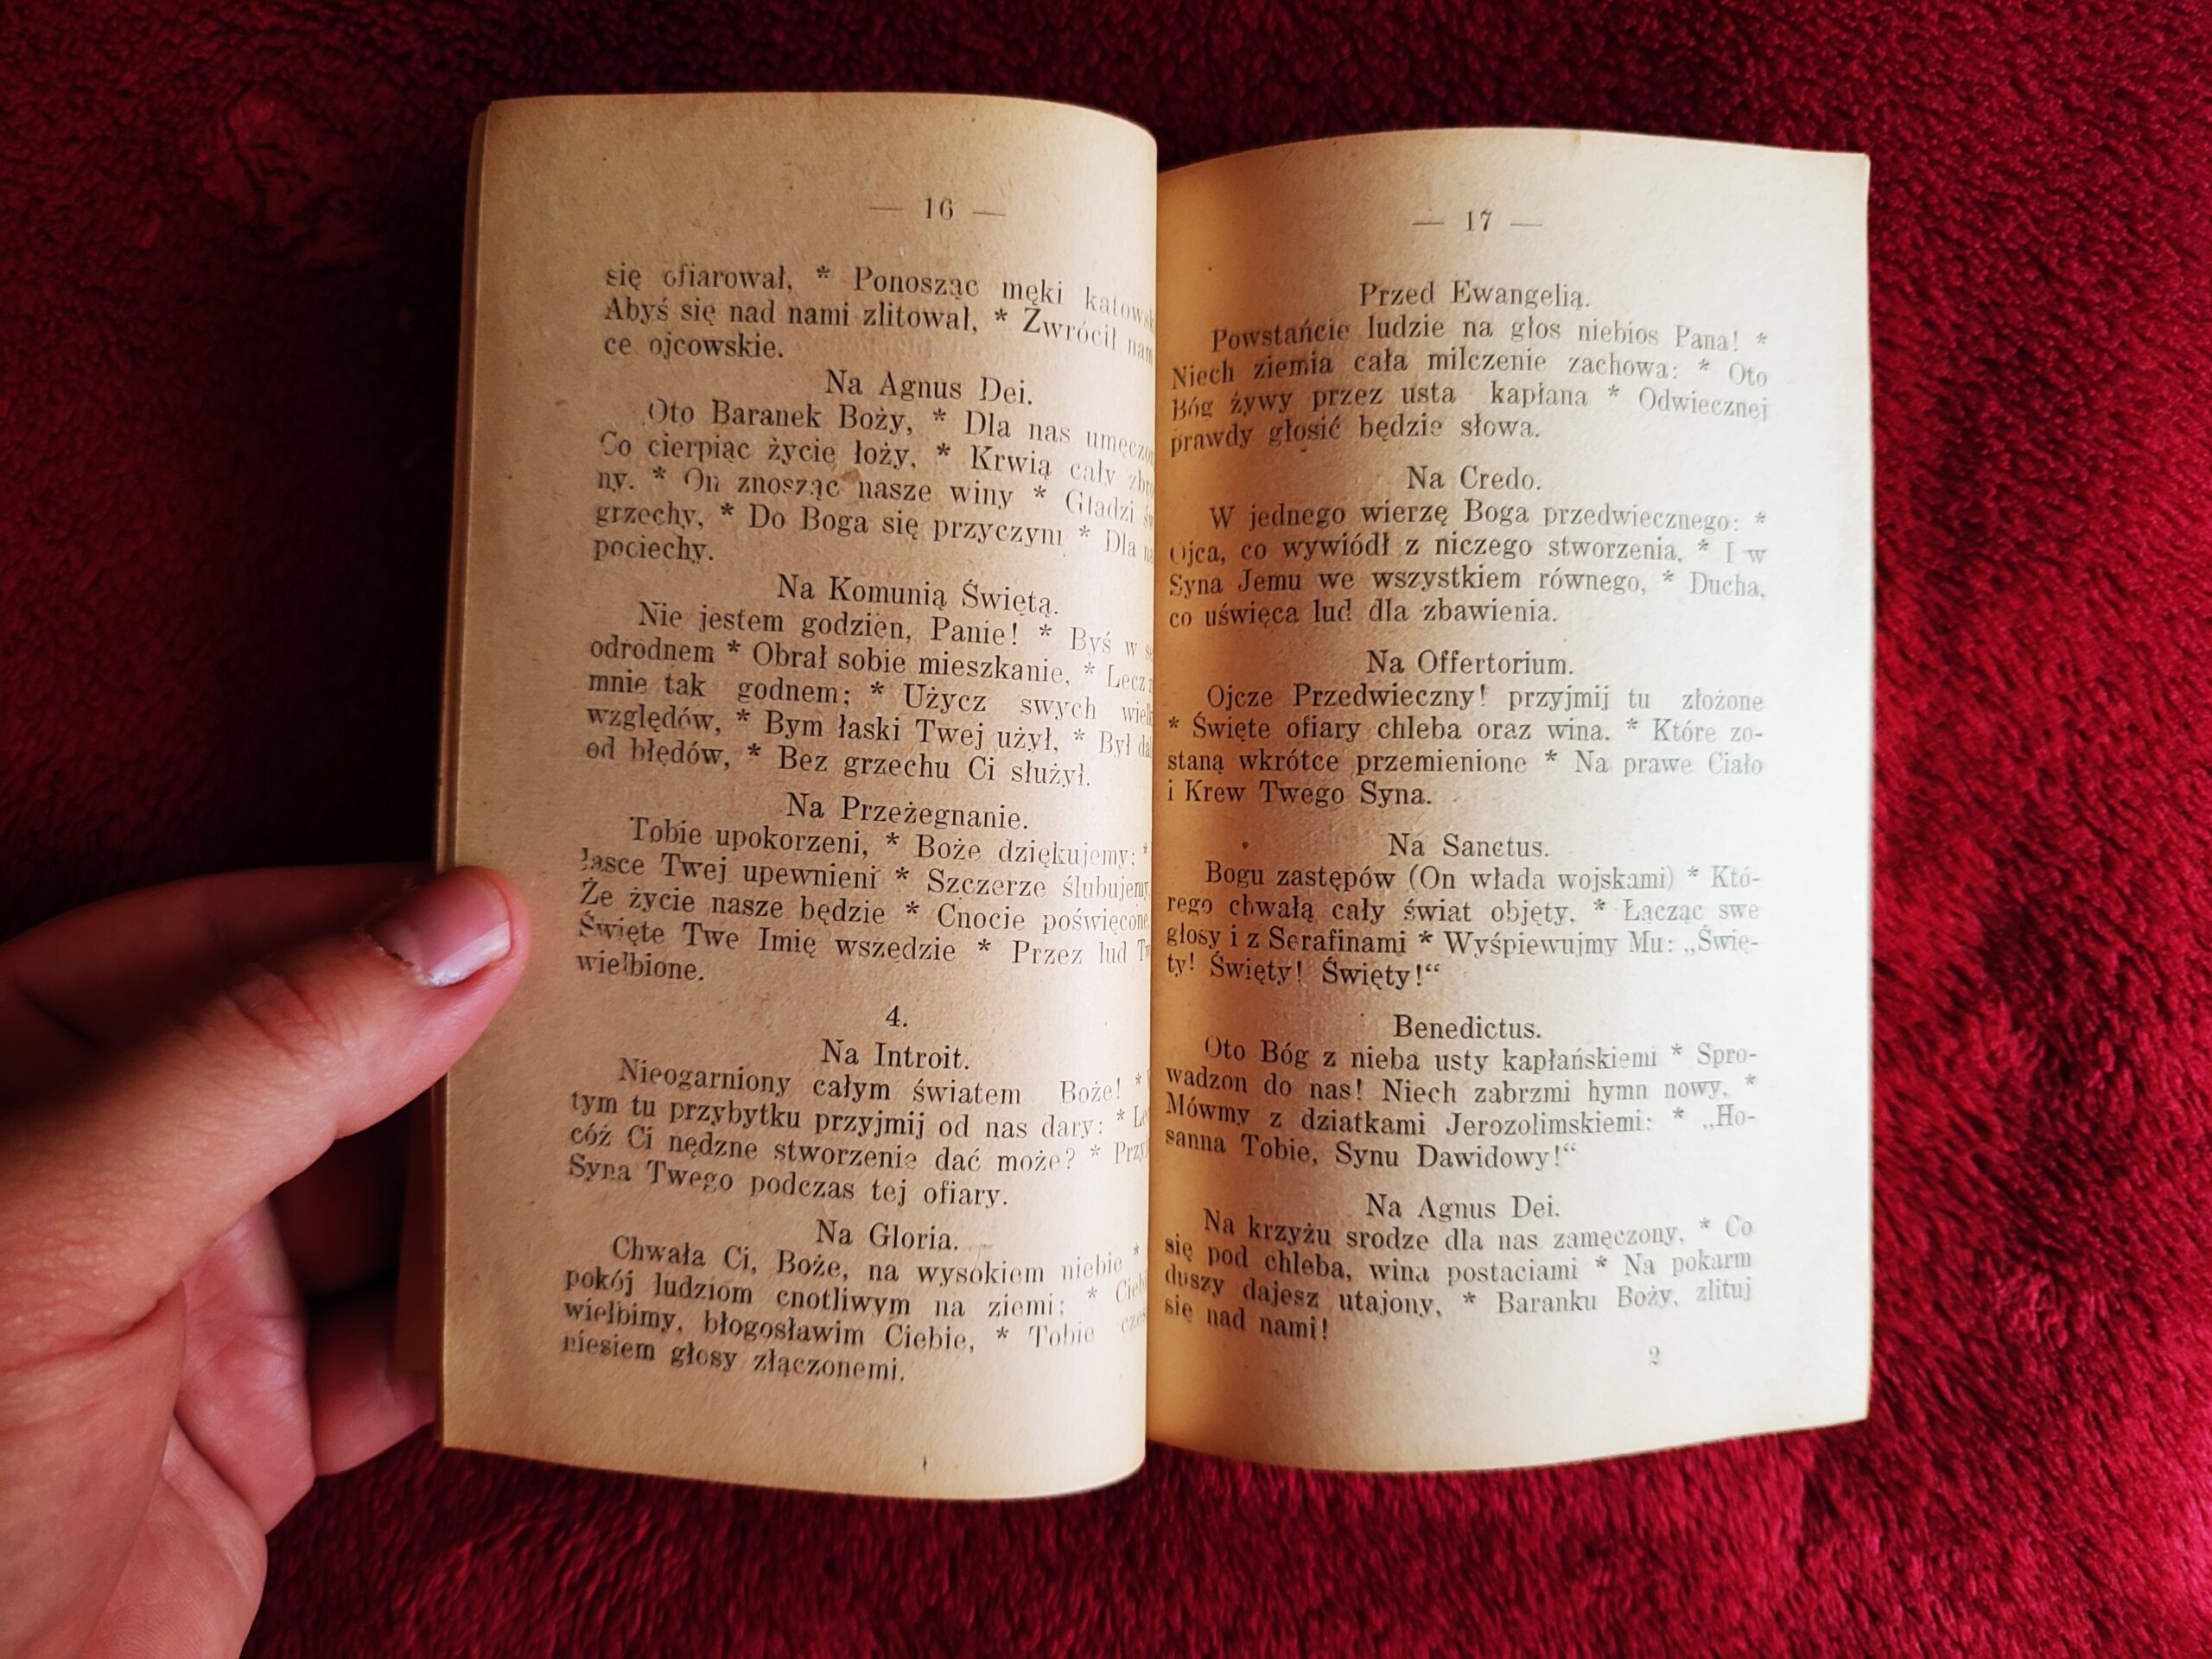 — 16 —
się ofiarował, * Ponosząc męki
Abyś się nad nami zlitował, * Zwrócił
ce ojcowskie.
Na Agnus Dei.
Oto Baranek Boży, * Dla nas
Co cierpiąc życie łoży, * Krwią cały
ny. * On znosząc nasze winy * Gładzi
grzechy, * Do Boga się przyczyni * Dla
pociechy.
Na Komunią Świętą.
Nie jestem godzien, Panie! * Byś w
odrodnem * Obrał sobie mieszkanie, * Lecz
mnie tak godnem; * Użycz swych
względów, * Bym łaski Twej użył, * Był
od błędów, * Bez grzechu Ci służył.
Na Przeżegnanie.
Tobie upokorzeni, * Boże dziękujemy; *
łasce Twej upewnieni * Szczerze ślubujemy
Że życie nasze będzie * Cnocie poświęcone
Święte Twe Imię wszędzie * Przez lud
wielbione.
4.
Na Introit.
Nieogarniony całym światem Boże! *
tym tu przybytku przyjmij od nas dary: *
cóż Ci nędzne stworzenie dać może? *
Syna Twego podczas tej ofiary.
Na Gloria.
Chwała Ci, Boże, na wysokiem niebie *
pokój ludziom cnotliwym na ziemi; *
wielbimy, błogosławim Ciebie, * Tobie
niesiem głosy złączonemi.
— 17 —
Przed Ewangelią.
Powstańcie ludzie na głos niebios Pana! *
Niech ziemia cała milczenie zachowa: * Oto
Bóg żywy przez usta kapłana * Odwiecznej
prawdy głosić będzie słowa.
Na Credo.
W jednego wierzę Boga przedwiecznego: *
Ojca, co wywiódł z niczego stworzenia, * I w
Syna Jemu we wszystkiem równego, * Ducha,
co uświęca lud dla zbawienia.
Na Offertorium.
Ojcze Przedwieczny! przyjmij tu złożone
* Święte ofiary chleba oraz wina. * Które zo-
staną wkrótce przemienione * Na prawe Ciało
i Krew Twego Syna.
Na Sanctus.
Bogu zastępów (On włada wojskami) * Któ-
rego chwałą cały świat objęty, * Łącząc swe
głosy i z Serafinami * Wyśpiewujmy Mu: „Świę-
ty! Święty! Święty!“
Benedictus.
Oto Bóg z nieba usty kapłańskiemi * Spro-
wadzon do nas! Niech zabrzmi hymn nowy, *
Mówmy z dziatkami Jerozolimskiemi: * „Ho-
sanna Tobie, Synu Dawidowy!“
Na Agnus Dei.
Na krzyżu srodze dla nas zamęczony, * Co
się pod chleba, wina postaciami * Na pokarm
duszy dajesz utajony, * Baranku Boży, zlituj
się nad nami!
2